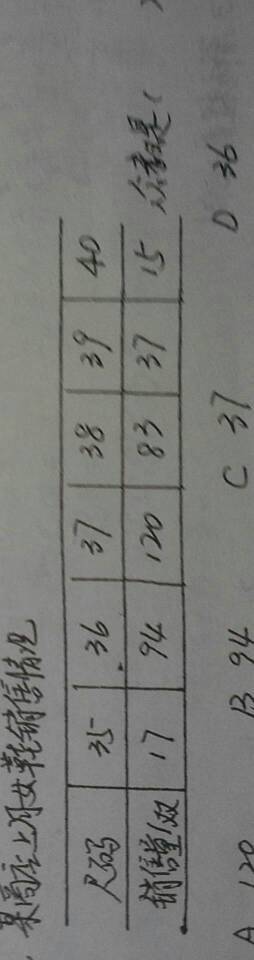 某商店上月女鞋销售情况
尺码 35 36 37 38 39 40
销售量/双 17 94 120 83 37 15 众数是(
A 120 B 94 C 37 D 36